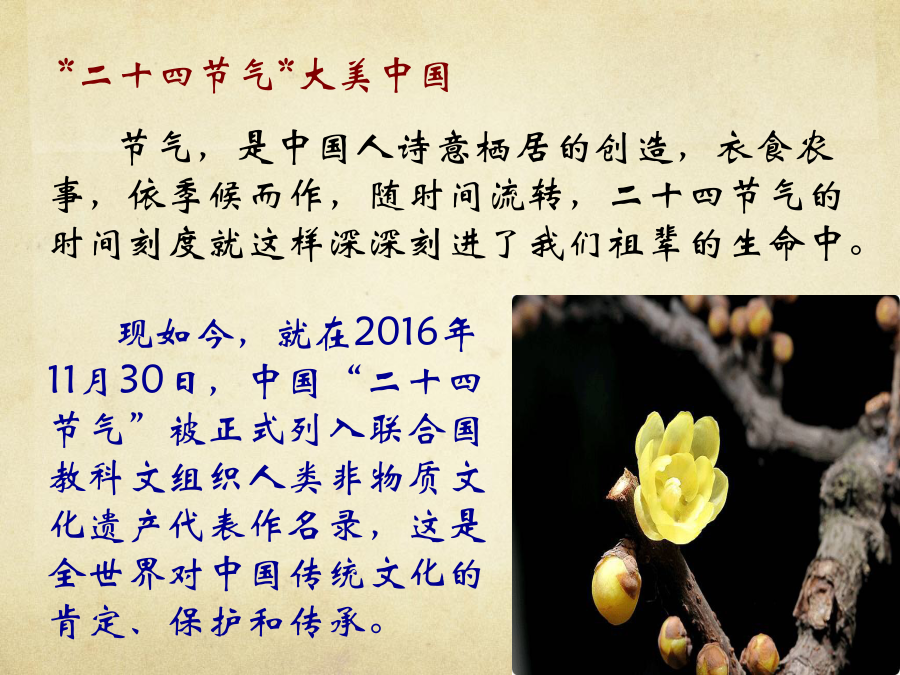 *二十四节气*大美中国
节气，是中国人诗意栖居的创造，衣食农
事，依季候而作，随时间流转，二十四节气的
时间刻度就这样深深刻进了我们祖辈的生命中。
现如今，就在2016年
11月30日，中国“二十四
节气”被正式列入联合国
教科文组织人类非物质文
化遗产代表作名录，这是
全世界对中国传统文化的
肯定、保护和传承。